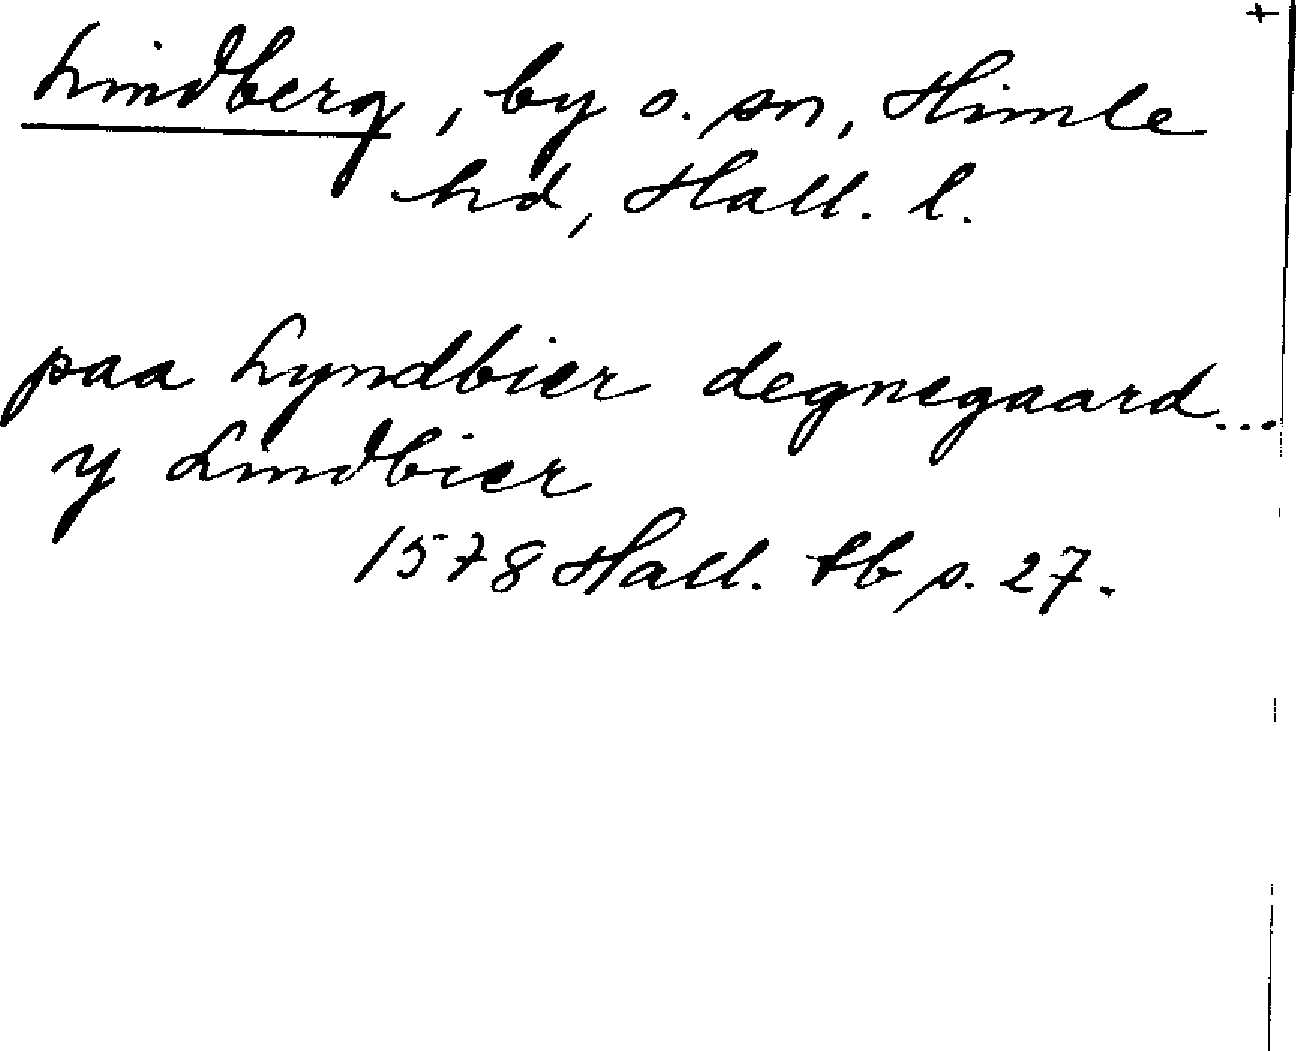 +
Lindberg, by o. sn, Himle
hd, Hall. l.
paa Lyndbier degnegaard...
y Lindbier
1578 Hall. tb s. 27.